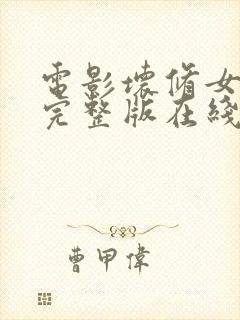 電影壞脩女
完整版在綫
曹甲偉